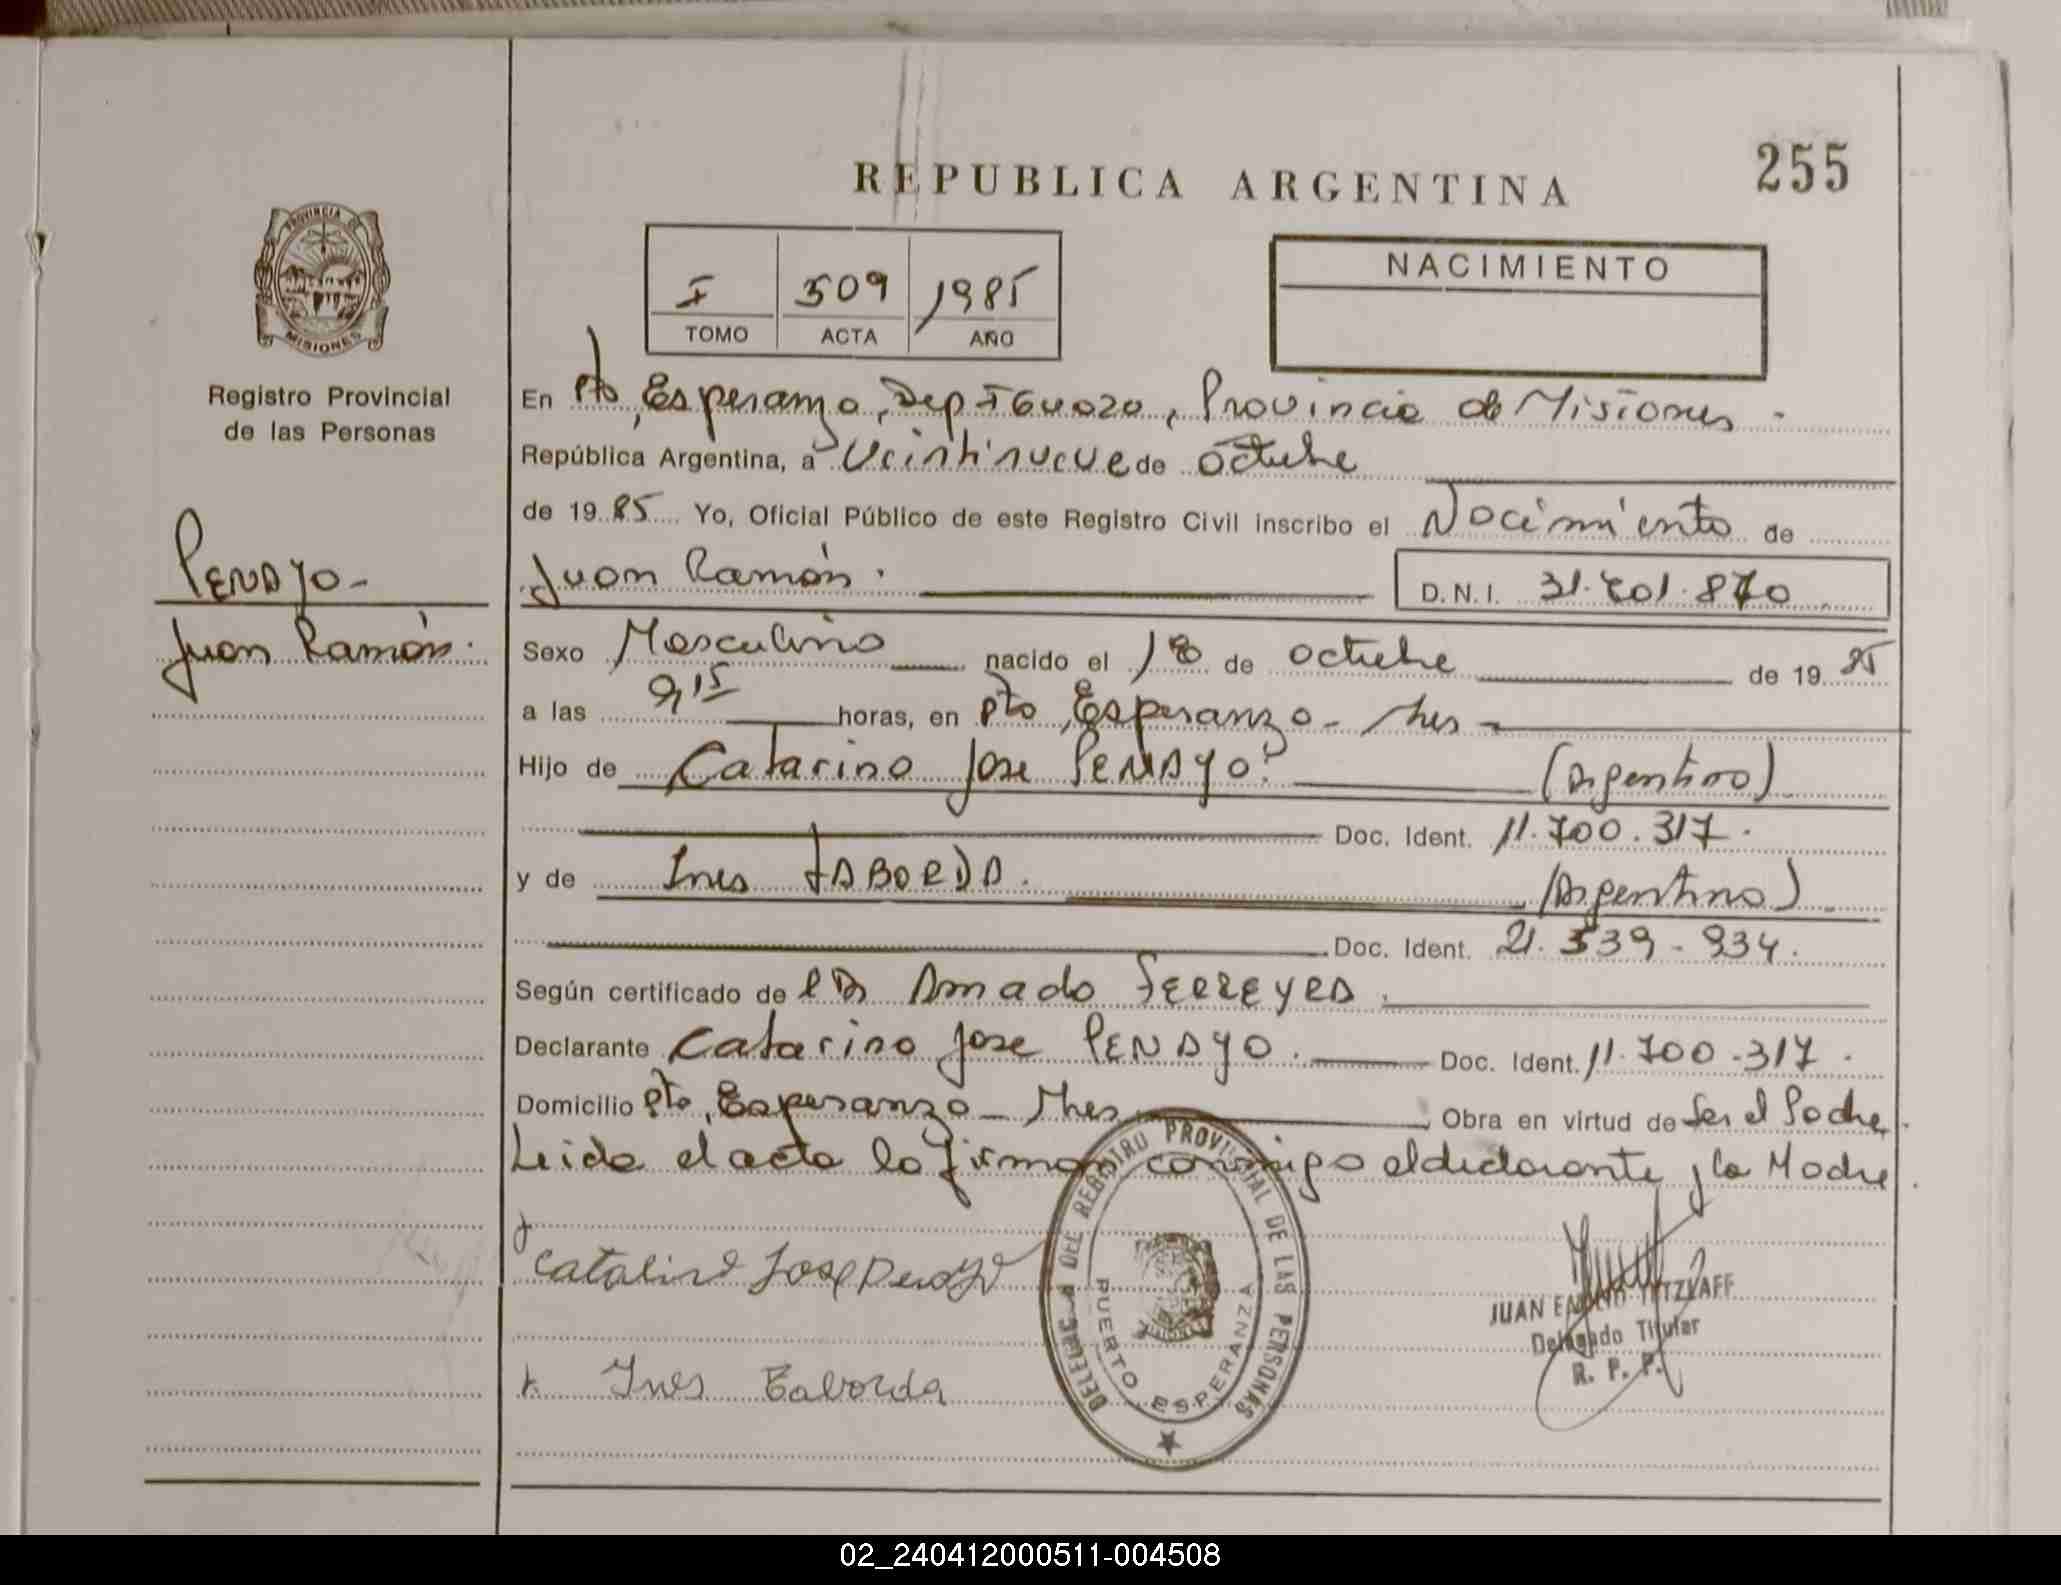 REPUBLICA ARGENTINA
255
PROVINCIA DE
MISIONES
Registro Provincial
de las Personas
I 509 1985
TOMO ACTA AÑO
NACIMIENTO
En Pto, Esperanza, Dep Iguazu, Provincia de Misiones
República Argentina, a Veintinueve de octubre
de 1985 Yo, Oficial Público de este Registro Civil inscribo el Nacimiento de
PENAYO-
Juan Ramón.
Juan Ramón.
D.N.I. 31.701.870
Sexo Masculino nacido el 18 de octubre de 1985
a las 9,15 horas, en Pto, Esperanza - Mnes -
Hijo de Catarino Jose PENAYO. (Argentino)
Doc. Ident. 11.700.317.
y de Ines TABORDA. (Argentina)
Doc. Ident. 21.539.934.
Según certificado de Amado
Declarante Catarino Jose PENAYO. Doc. Ident. 11.700.317.
Domicilio Pto, Esperanza - Mnes, Obra en virtud de Ser el Padre.
Leida el acta la firman conmigo el declarante y la Madre.
Catalino Jose Penayo
x Ines Taborda
DELEGACIA DEL REGISTRO PROVINCIAL DE LAS PERSONAS
PUERTO ESPERANZA
JUAN
Delegado Titular
R. P. P.
02_240412000511-004508